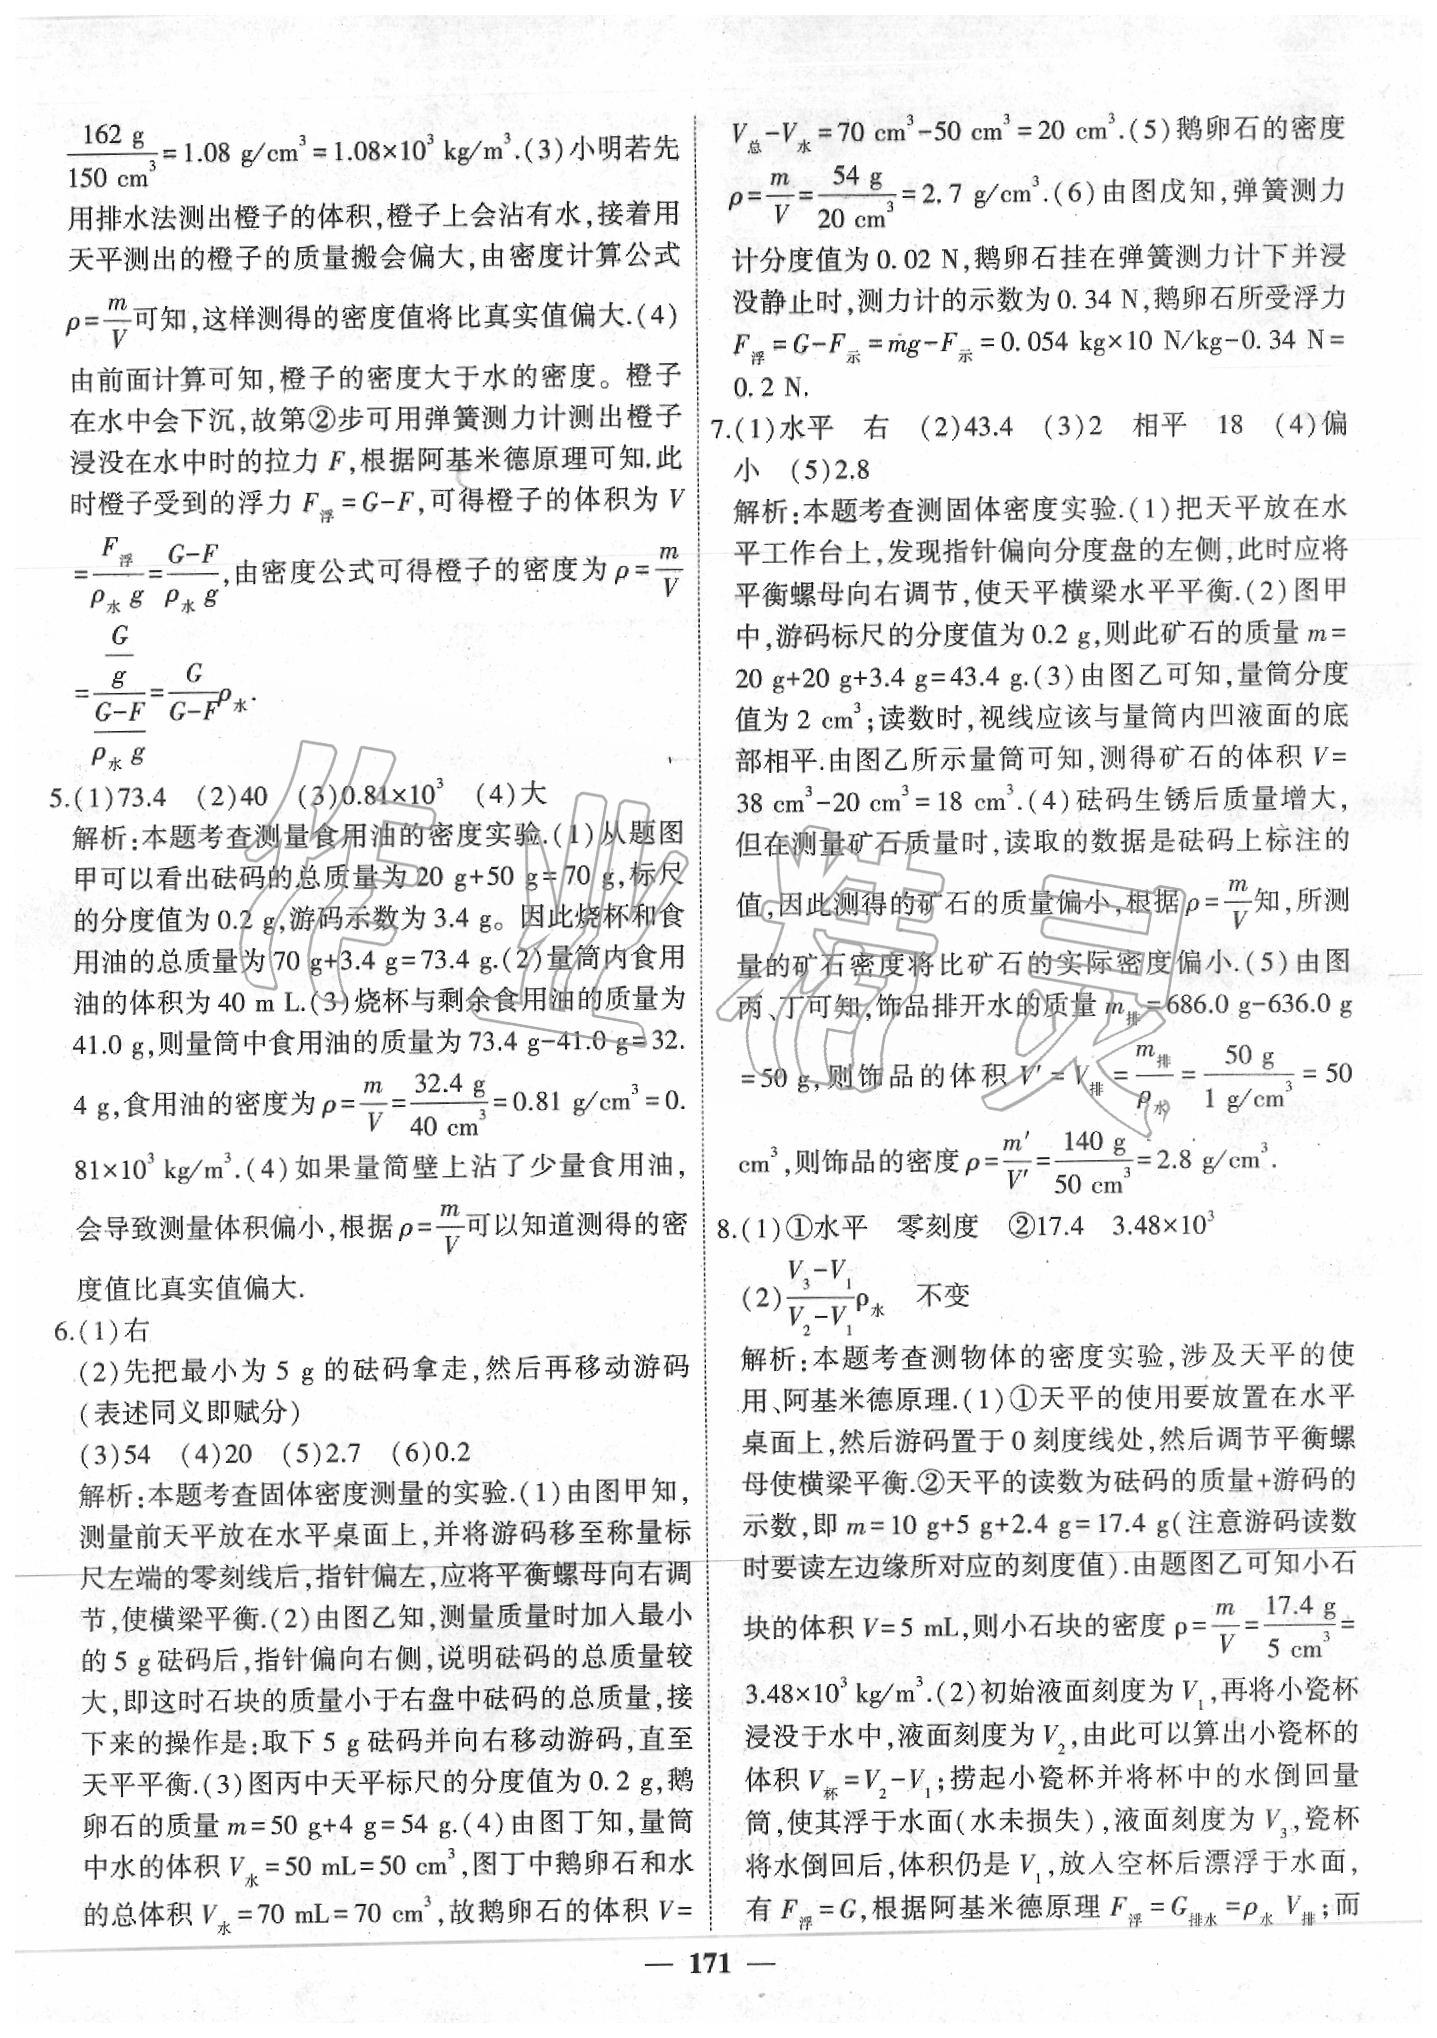 162 g/150 cm³=1.08 g/cm³=1.08×10³ kg/m³.(3)小明若先
用排水法测出橙子的体积,橙子上会沾有水,接着用
天平测出的橙子的质量搬会偏大,由密度计算公式
ρ=m/V可知,这样测得的密度值将比真实值偏大.(4)
由前面计算可知,橙子的密度大于水的密度。橙子
在水中会下沉,故第②步可用弹簧测力计测出橙子
浸没在水中时的拉力 F,根据阿基米德原理可知.此
时橙子受到的浮力 F浮=G-F,可得橙子的体积为 V
=F浮/ρ水 g=G-F/ρ水 g,由密度公式可得橙子的密度为 ρ=m/V
=(G/g)/(G-F/ρ水 g)=G/G-F ρ水.
5.(1)73.4 (2)40 (3)0.81×10³ (4)大
解析:本题考查测量食用油的密度实验.(1)从题图
甲可以看出砝码的总质量为20 g+50 g=70 g,标尺
的分度值为0.2 g,游码示数为3.4 g。因此烧杯和食
用油的总质量为70 g+3.4 g=73.4 g.(2)量筒内食用
油的体积为 40 m L.(3)烧杯与剩余食用油的质量为
41.0 g,则量筒中食用油的质量为73.4 g-41.0 g=32.
4 g,食用油的密度为ρ=m/V=32.4 g/40 cm³=0.81 g/cm³=0.
81×10³ kg/m³.(4)如果量筒壁上沾了少量食用油,
会导致测量体积偏小,根据ρ=m/V可以知道测得的密
度值比真实值偏大.
6.(1)右
(2)先把最小为 5 g 的砝码拿走,然后再移动游码
(表述同义即赋分)
(3)54 (4)20 (5)2.7 (6)0.2
解析:本题考查固体密度测量的实验.(1)由图甲知,
测量前天平放在水平桌面上,并将游码移至称量标
尺左端的零刻线后,指针偏左,应将平衡螺母向右调
节,使横梁平衡.(2)由图乙知,测量质量时加入最小
的 5 g砝码后,指针偏向右侧,说明砝码的总质量较
大,即这时石块的质量小于右盘中砝码的总质量,接
下来的操作是:取下 5 g 砝码并向右移动游码,直至
天平平衡.(3)图丙中天平标尺的分度值为 0.2 g,鹅
卵石的质量 m=50 g+4 g=54 g.(4)由图丁知,量筒
中水的体积 V水=50 mL=50 cm³,图丁中鹅卵石和水
的总体积 V水=70 mL=70 cm³,故鹅卵石的体积 V=
V总-V水=70 cm³-50 cm³=20 cm³.(5)鹅卵石的密度
ρ=m/V=54 g/20 cm³=2.7 g/cm³.(6)由图戊知,弹簧测力
计分度值为 0.02 N,鹅卵石挂在弹簧测力计下并浸
没静止时,测力计的示数为 0.34 N,鹅卵石所受浮力
F浮=G-F示=mg-F示=0.054 kg×10 N/kg-0.34 N=
0.2 N.
7.(1)水平 右 (2)43.4 (3)2 相平 18 (4)偏
小 (5)2.8
解析:本题考查测固体密度实验.(1)把天平放在水
平工作台上,发现指针偏向分度盘的左侧,此时应将
平衡螺母向右调节,使天平横梁水平平衡.(2)图甲
中,游码标尺的分度值为 0.2 g,则此矿石的质量 m=
20 g+20 g+3.4 g=43.4 g.(3)由图乙可知,量筒分度
值为 2 cm³;读数时,视线应该与量筒内凹液面的底
部相平.由图乙所示量筒可知,测得矿石的体积 V=
38 cm³-20 cm³=18 cm³.(4)砝码生锈后质量增大,
但在测量矿石质量时,读取的数据是砝码上标注的
值,因此测得的矿石的质量偏小,根据ρ=m/V知,所测
量的矿石密度将比矿石的实际密度偏小.(5)由图
丙、丁可知,饰品排开水的质量 m排=686.0 g-636.0 g
=50 g,则饰品的体积 V′=V排=m排/ρ水=50 g/1 g/cm³=50
cm³,则饰品的密度ρ=m′/V′=140 g/50 cm³=2.8 g/cm³.
8.(1)①水平 零刻度 ②17.4 3.48×10³
(2)V₃-V₁/V₂-V₁ ρ水 不变
解析:本题考查测物体的密度实验,涉及天平的使
用、阿基米德原理.(1)①天平的使用要放置在水平
桌面上,然后游码置于0刻度线处,然后调节平衡螺
母使横梁平衡.②天平的读数为砝码的质量+游码的
示数,即 m=10 g+5 g+2.4 g=17.4 g(注意游码读数
时要读左边缘所对应的刻度值).由题图乙可知小石
块的体积 V=5 mL,则小石块的密度 ρ=m/V=17.4 g/5 cm³=
3.48×10³ kg/m³.(2)初始液面刻度为 V₁,再将小瓷杯
浸没于水中,液面刻度为 V₂,由此可以算出小瓷杯的
体积 V杯=V₂-V₁;捞起小瓷杯并将杯中的水倒回量
筒,使其浮于水面(水未损失),液面刻度为 V₃,瓷杯
将水倒回后,体积仍是 V₁,放入空杯后漂浮于水面,
有 F浮=G,根据阿基米德原理 F浮=G排水=ρ水 V排;而
— 171 —
作业精灵